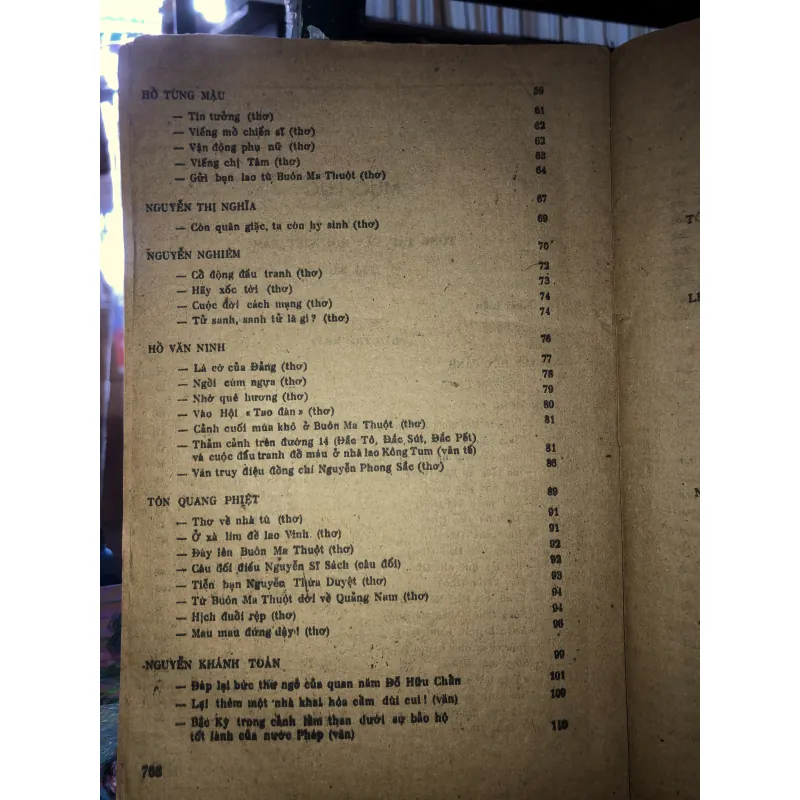 HỒ TÙNG MẬU 59
— Tin tưởng (thơ) 61
— Viếng mồ chiến sĩ (thơ) 62
— Vận động phụ nữ (thơ) 62
— Viếng chị Tâm (thơ) 63
— Gửi bạn lao tù Buôn Ma Thuột (thơ) 64
NGUYỄN THỊ NGHĨA 67
— Còn quân giặc, ta còn hy sinh (thơ) 69
NGUYỄN NGHIÊM 70
— Cổ động đấu tranh (thơ) 72
— Hãy xốc tới (thơ) 73
— Cuộc đời cách mạng (thơ) 74
— Tử sanh, sanh tử là gì? (thơ) 74
HỒ VĂN NINH 76
— Lá cờ của Đảng (thơ) 77
— Ngồi cúm ngựa (thơ) 78
— Nhớ quê hương (thơ) 79
— Vào Hội « Tao đàn » (thơ) 80
— Cảnh cuối mùa khô ở Buôn Ma Thuột (thơ) 81
— Thảm cảnh trên đường 14 (Đắc Tô, Đắc Sút, Đắc Pết)
và cuộc đấu tranh đổ máu ở nhà lao Kông Tum (văn tế) 81
— Văn truy điệu đồng chí Nguyễn Phong Sắc (thơ) 86
TÔN QUANG PHIỆT 89
— Thơ về nhà tù (thơ) 91
— Ở xà lim đề lao Vinh (thơ) 91
— Đày lên Buôn Ma Thuột (thơ) 92
— Câu đối điếu Nguyễn Sĩ Sách (câu đối) 92
— Tiễn bạn Nguyễn Thừa Duyệt (thơ) 93
— Từ Buôn Ma Thuột dời về Quảng Nam (thơ) 94
— Hịch đuổi rệp (thơ) 94
— Mau mau đứng dậy! (thơ) 96
NGUYỄN KHÁNH TOÀN 99
— Đáp lại bức thư ngỏ của quan năm Đỗ Hữu Chẩn 101
— Lại thêm một nhà khai hóa cầm dùi cui! (văn) 109
— Bắc Kỳ trong cảnh lầm than dưới sự bảo hộ
tốt lành của nước Pháp (văn) 110
766